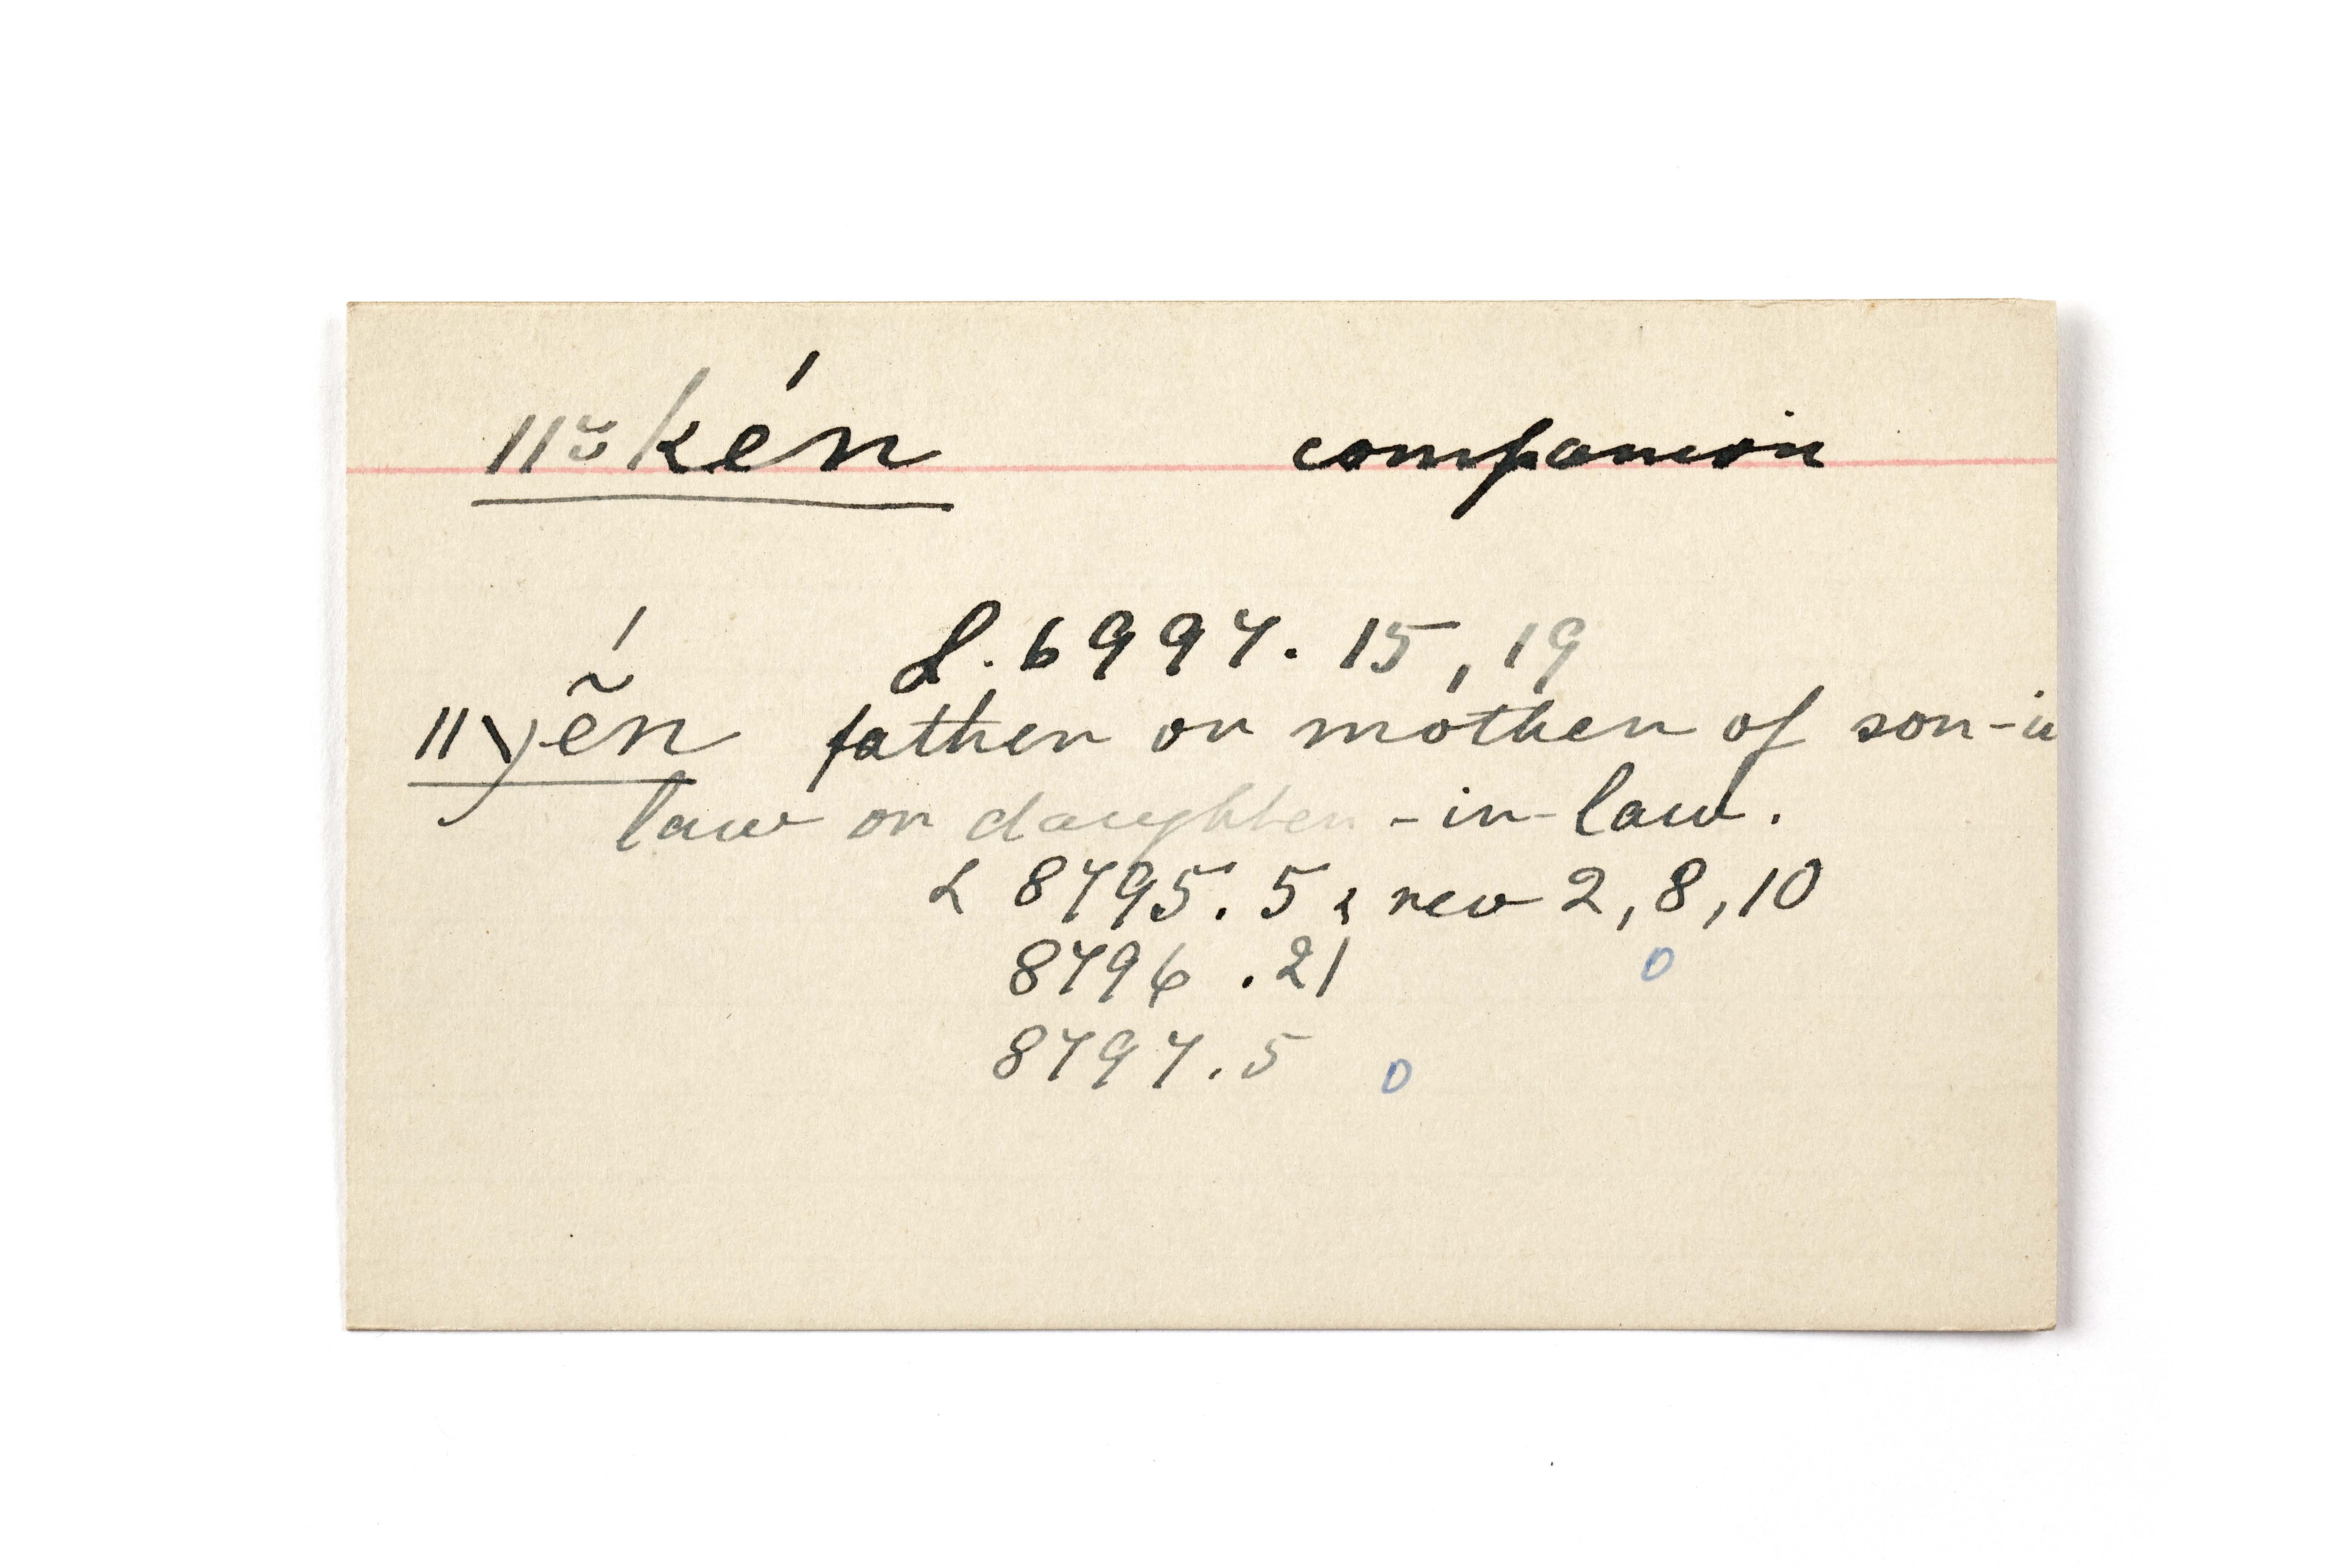 companion
L. 6997. 15, 19
father or mother of son-in
law or daughter-in-law.
L 8795. 5 & rev 2, 8, 10
8796 .21 0
8797. 5 0